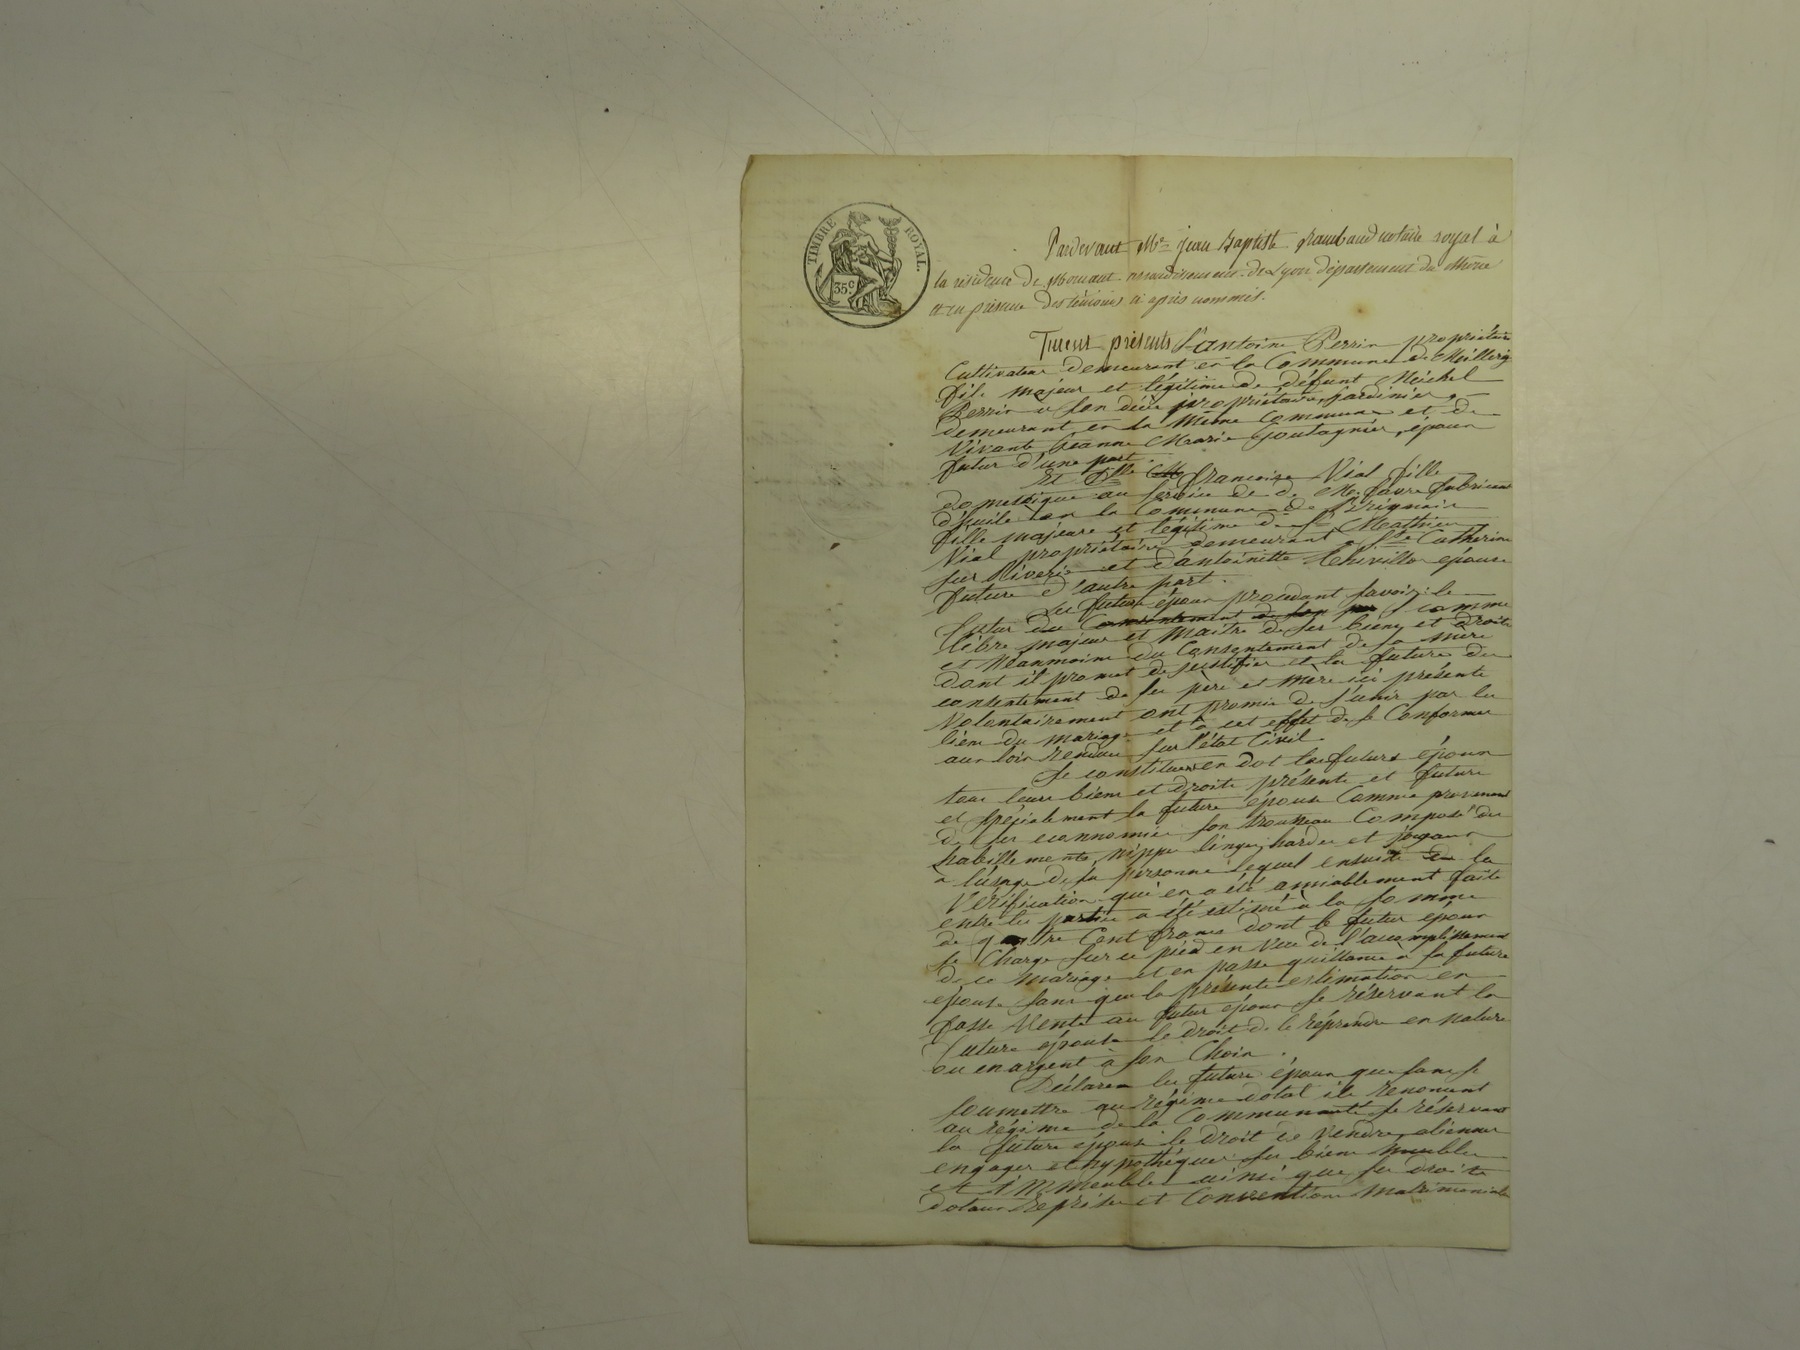 TIMBRE ROYAL.
35c
Pardevant Me jean Baptiste Rambaud notaire royal à
la résidence de Mornant arrondissement de Lyon département du Rhône
et en présence des témoins ci après nommés.
Furent présents Sr antoine Perrin propriétaire
Cultivateur demeurant en la Commune de Millery
fils majeur et légitime de défunt Michel
Perrin a son décè propriétaire, jardinier
demeurant en la Même Commune et de
Vivante Jeanne Marie Goutagnier, époux
futur d'une part.
Et Dlle francoise Vial fille
domestique au service de de Mr favre fabricant
d'huile en la Commune de Brignais
fille majeure et légitime de Sr Mathieu
Vial propriétaire demeurant a Ste Catherine
sur Riverie et d'antoinette Thivillon epouse
future d'autre part.
Les futurs époux procédant savoir; le
futur du Consentement de son pere comme
libre majeur et Maitre de ses biens et droits
et Néanmoins du Consentement de sa mère
dont il promet de justifier et la future du
consentement de ses père et mere ici présents
Volontairement ont promis de s'unir par les
liens du mariage et a cet effet de se Conformer
aux loix rendues sur l'état Civil.
Se constituent en dot les futurs époux
tous leurs biens et droits présents et futurs
et spécialement la future épouse Comme provenant
de ses economies son trousseau Composé des
habillements, nippes linges, hardes et joyaux
a l'usage de sa personne lequel ensuite de la
Vérification qui en a été amiablement faite
entre les parties a été estimé à la somme
de quatre Cent francs dont le futur époux
se Charge sur ce pied en Vue de l'accomplissement
de ce mariage et en passe quittance a sa future
epouse sans que la présente estimation en
fasse Vente au futur époux se réservant la
future épouse le droit de le réprendre en nature
ou en argent à son Choix.
Déclarent les futurs époux que sans se
soumettre au régime dotal ils renoncent
au régime de la Communauté se réservant
la future épouse le droit de Vendre, aliener
engager et hypothéquer ses biens meubles
et immeubles ainsi que ses droits
dotaux reprises et Conventions Matrimoniales